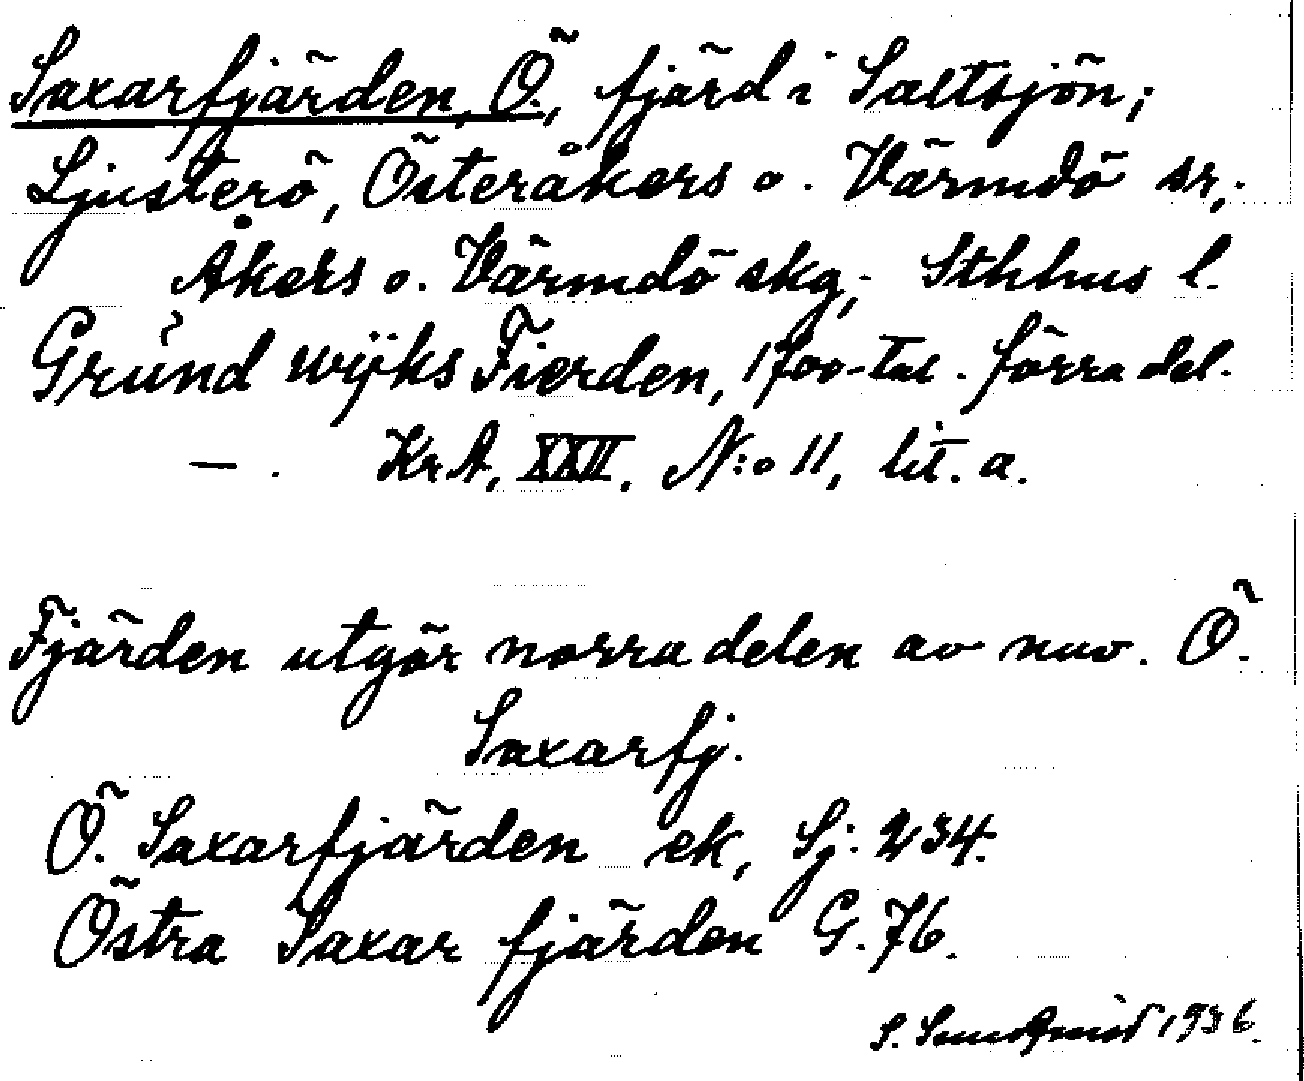 Saxarfjärden, Ö., fjärd i Saltsjön;
Ljusterö, Österåkers o. Värmdö sr,.
Åkers o. Värmdö skg,. Sthhus l.
Grundwijks Fierden, 1700-tal. förra del.
— . KrA, XXII. N:o 11, lit. a.
Fjärden utgör norra delen av nuv. Ö.
Saxarfj.
Ö. Saxarfjärden ek, Sj. 234.
Östra Saxar fjärden G. 76.
S. 1936.